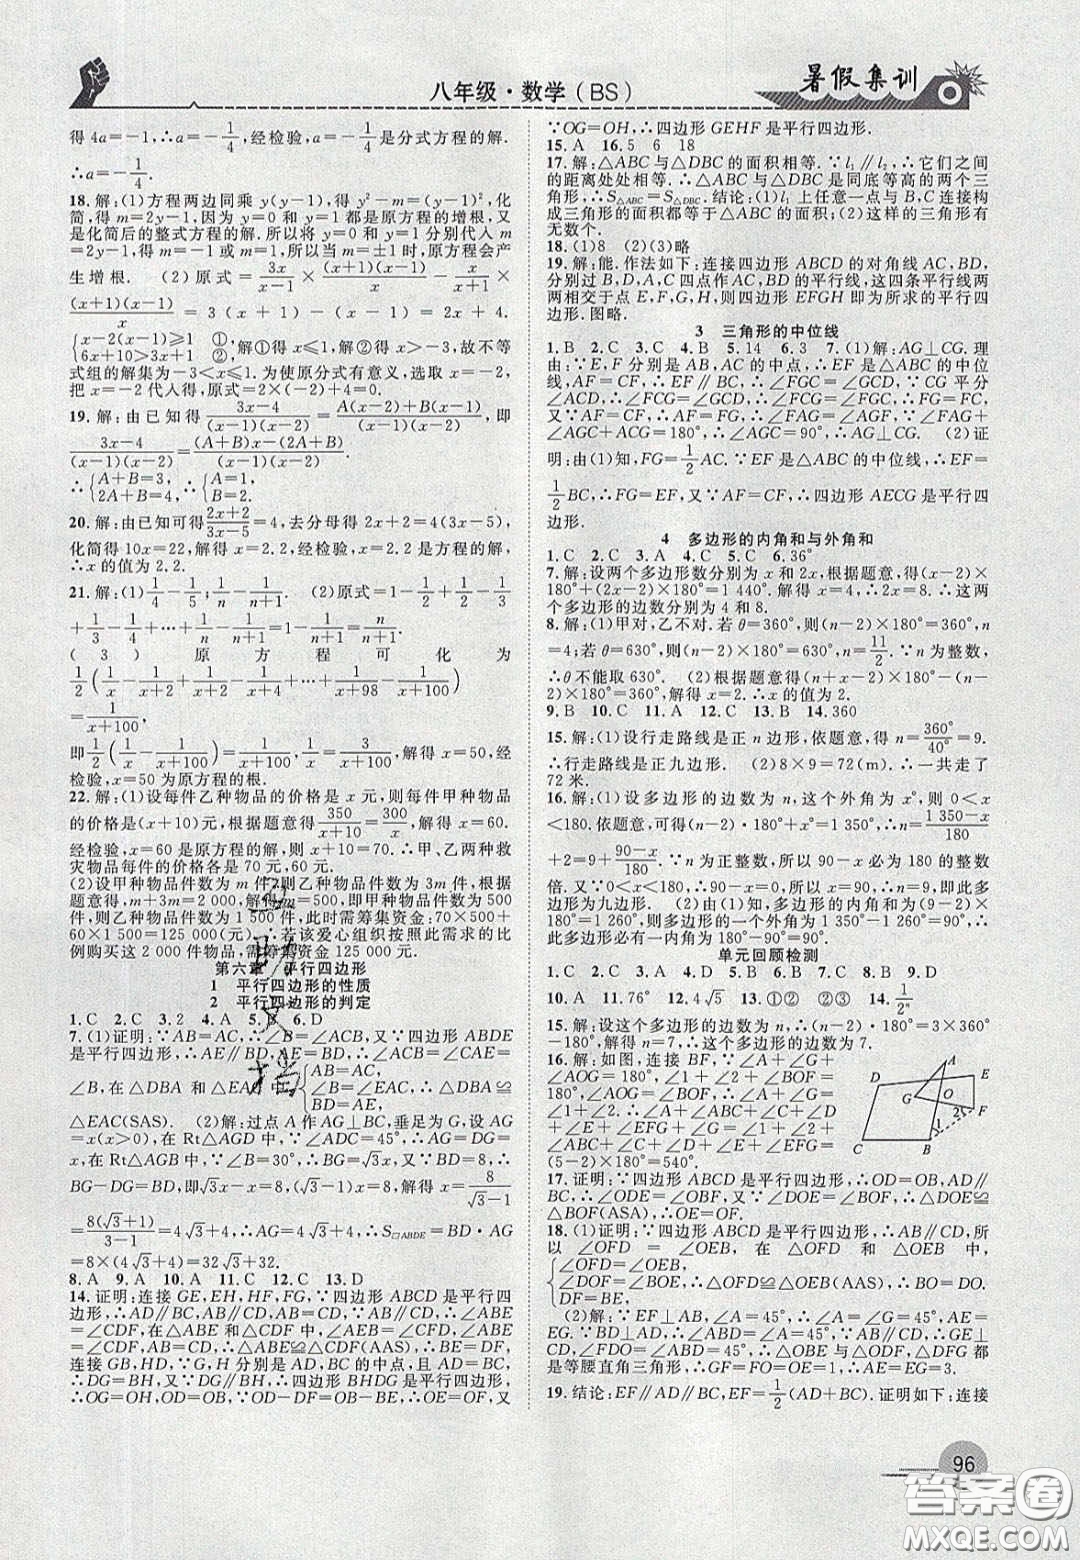 八年级·数学(BS)
暑假集训
得 4a=-1,∴a=-1/4,经检验,a=-1/4是分式方程的解.
∴a=-1/4.
18.解:(1)方程两边同乘 y(y-1),得 y²-m=(y-1)²,化
简,得 m=2y-1,因为 y=0 和 y=1 都是原方程的增根,又
是化简后的整式方程的解,所以当 y=0 和 y=1 分别代入 m
=2y-1,得 m=-1 或 m=1,所以当 m=±1 时,原方程会产
生增根. (2)原式=3x/(x-1)×(x+1)(x-1)/x-x/(x+1)×
(x+1)(x-1)/x=3(x+1)-(x-1)=2x+4.
{x-2(x-1)≥1 ①,
6x+10>3x+1 ②, 解①得 x≤1,解②得 x>-3,故不等
式组的解集为-3<x≤1.为使原分式有意义,选取 x=-2,
把 x=-2 代入得,原式=2×(-2)+4=0.
19.解:由已知得(3x-4)/(x-1)(x-2)=[A(x-2)+B(x-1)]/(x-1)(x-2),即
(3x-4)/(x-1)(x-2)=[(A+B)x-(2A+B)]/(x-1)(x-2).
∴{A+B=3,
2A+B=4, ∴{A=1,
B=2.
20.解:由已知可得(2x+2)/(3x-5)=4,去分母得 2x+2=4(3x-5),
化简得 10x=22,解得 x=2.2,经检验,x=2.2 是方程的解,
∴x 的值为 2.2.
21.解:(1)1/4-1/5;1/n-1/(n+1). (2)原式=1-1/2+1/2-1/3
+1/3-1/4+…+1/n-1/(n+1)=1-1/(n+1)=n/(n+1).
(3)原方程可化为
1/2(1/x-1/(x+2)+1/(x+2)-1/(x+4)+…+1/(x+98)-1/(x+100))
=1/(x+100),
即1/2(1/x-1/(x+100))=1/(x+100),1/x=3/(x+100),解得 x=50,经
检验,x=50 为原方程的根.
22.解:(1)设每件乙种物品的价格是 x 元,则每件甲种物品
的价格是(x+10)元,根据题意得350/(x+10)=300/x,解得 x=60.
经检验,x=60 是原方程的解,则 x+10=70.∴甲、乙两种救
灾物品每件的价格各是 70 元,60 元.
(2)设甲种物品件数为 m 件,则乙种物品件数为 3m 件,根据
题意得,m+3m=2 000,解得 m=500,即甲种物品件数为
500 件,则乙种物品件数为 1 500 件,此时需筹集资金:70×500+
60×1 500=125 000(元).∴若该爱心组织按照此需求的比
例购买这 2 000 件物品,需筹集资金 125 000 元.
第六章 平行四边形
1 平行四边形的性质
2 平行四边形的判定
1.C 2.C 3.2 4.A 5.B 6.D
7.(1)证明:∵AB=AC,∴∠B=∠ACB,又∵四边形 ABDE
是平行四边形,∴AE∥BD,AE=BD,∴∠ACB=∠CAE=
∠B,在△DBA 和△EAC 中{AB=AC,
∠B=∠EAC,
BD=AE, ∴△DBA≌
△EAC(SAS). (2)解:过点 A 作 AG⊥BC,垂足为 G,设 AG
=x(x>0),在 Rt△AGD 中,∵∠ADC=45°,∴AG=DG=
x,在 Rt△AGB 中,∵∠B=30°,∴BG=√3x,又∵BD=8,∴
BG-DG=BD,即√3x-x=8,(√3-1)x=8,解得 x=8/(√3-1)
=8(√3+1)/(3-1)=4√3+4,∴AG=4√3+4,∴S□ABDE=BD·AG
=8×(4√3+4)=32√3+32.
8.A 9.A 10.A 11.C 12.C 13.D
14.证明:连接 GE,EH,HF,FG,∵四边形 ABCD 是平行四
边形,∴AD∥BC,AB∥CD,AB=CD,∴∠ABE=
∠CDF,在△ABE 和△CDF 中,∠AEB=∠CFD,∠ABE
=∠CDF,AB=CD,∴△ABE≌△CDF(AAS),∴BE=DF,
连接 GB,HD,∵G,H 分别是 AD,BC 的中点,且 AD=
BC,∴DG=BH,又 AD∥BC,∴四边形 BHDG 是平行四边形,
∴OG=OH,OB=OD,∴OD-DF=OB-BE,∴OE=OF,又
∵OG=OH,∴四边形 GEHF 是平行四边形.
15.A 16.5 6 18
17.解:△ABC 与△DBC 的面积相等.∵l₁∥l₂,∴它们之间
的距离处处相等.∴△ABC 与△DBC 是同底等高的两个三
角形,∴S△ABC=S△DBC.结论:(1)l₁ 上任意一点与 B,C 连接构
成三角形的面积都等于△ABC 的面积;(2)这样的三角形有
无数个.
18.(1)8 (2)(3)略
19.解:能.作法如下:连接四边形 ABCD 的对角线 AC,BD,
分别过 B,D,A,C 四点作 AC,BD 的平行线,这四条平行线两
两相交于点 E,F,G,H,则四边形 EFGH 即为所求的平行四
边形.图略.
3 三角形的中位线
1.B 2.C 3.C 4.B 5.14 6.3 7.(1)解:AG⊥CG.理
由:∵E,F 分别是 AB,AC 的中点,∴EF 是△ABC 的中位
线,AF=CF,∴EF∥BC,∴∠FGC=∠GCD,∵CG 平分
∠ACD,∴∠FCG=∠GCD,∴∠FGC=∠FCG,∴FG=FC,
又∵AF=CF,∴AF=FG,∴∠FAG=∠AGF,∵∠FAG+
∠AGC+ACG=180°,∴∠AGC=90°,∴AG⊥CG. (2)证
明:由(1)知,FG=1/2AC.∵EF 是△ABC 的中位线,∴EF=
1/2BC,∴FG=EF,又∵AF=CF,∴四边形 AECG 是平行四
边形.
4 多边形的内角和与外角和
1.C 2.C 3.A 4.C 5.C 6.36°
7.解:设两个多边形数分别为 x 和 2x,根据题意,得(x-2)×
180°+(2x-2)×180°=1 440°.解得 x=4.∴2x=8.∴这两
个多边形的边数分别为 4 和 8.
8.解:(1)甲对,乙不对.若θ=360°,则(n-2)×180°=360°,n
=4;若θ=630°,则(n-2)×180°=630°,n=11/2.∵n 为整数,
∴θ不能取 630°. (2)根据题意得(n+x-2)×180°-(n-
2)×180°=360°,解得 x=2.∴x 的值为 2.
9.B 10.C 11.A 12.C 13.B 14.360
15.解:(1)设行走路线是正 n 边形,依题意,得 n=360°/40°=9.
∴行走路线是正九边形. (2)8×9=72(m).∴一共走了
72 米.
16.解:(1)设多边形的边数为 n,这个外角为 x°,则 0<x
<180.依题意,可得(n-2)·180+x=1 350,∴n=(1 350-x)/180
+2=9+(90-x)/180.∵n 为正整数,所以 90-x 必为 180 的整数
倍.又∵0<x<180,∴90-x=0,x=90,∴n=9,即此多
边形为九边形. (2)由(1)知,多边形的内角和为(9-2)×
180°=1 260°,所以多边形的一个外角为 1 350°-1 260°=90°.∴此
多边形必有一内角为 180°-90°=90°.
单元回顾检测
1.C 2.C 3.C 4.D 5.B 6.C 7.B 8.D 9.D
10.A 11.76° 12.4√5 13.①② ②③ 14.1/2ⁿ
15.解:设这个多边形的边数为 n,∴(n-2)×180°=3×360°
-180°,解得 n=7,∴这个多边形的边数为 7.
16.解:如图,连接 BF,∵∠A+∠G+
∠AOG=180°,∠1+∠2+∠BOF=
180°,∠AOG=∠BOF,∴∠A+∠G
=∠1+∠2.∴∠A+∠ABC+∠C
+∠D+∠E+∠EFG+∠G=∠1+
∠ABC+∠C+∠D+∠E+∠EFG+∠2=
(5-2)×180°=540°.
A D E G O F 2 1 C B
17.证明:∵四边形 ABCD 是平行四边形,∴OD=OB,AD∥
BC,∴∠ODE=∠OBF,又∵∠DOE=∠BOF,∴△DOE≌
△BOF(ASA),∴OE=OF.
18.(1)证明:∵四边形 ABCD 是平行四边形,∴AB∥CD,所
以∠OFD=∠OEB,在△OFD 和△OEB 中,
{∠OFD=∠OEB,
∠DOF=∠BOE,∴△OFD≌△OEB(AAS),∴BO=DO.
DF=BE,
(2)解:∵EF⊥AB,∠A=45°,∴∠G=∠A=45°,AE=GE,
∵BD⊥AD,∠A=45°,∴△ADB,△ODF,△DFG 都
是等腰直角三角形,∴GF=FO=OE=1,∴AE=EG=3.
19.结论:EF∥AD∥BC,EF=1/2(AD+BC).证明如下:连接
96
答案圈
MXQE.COM